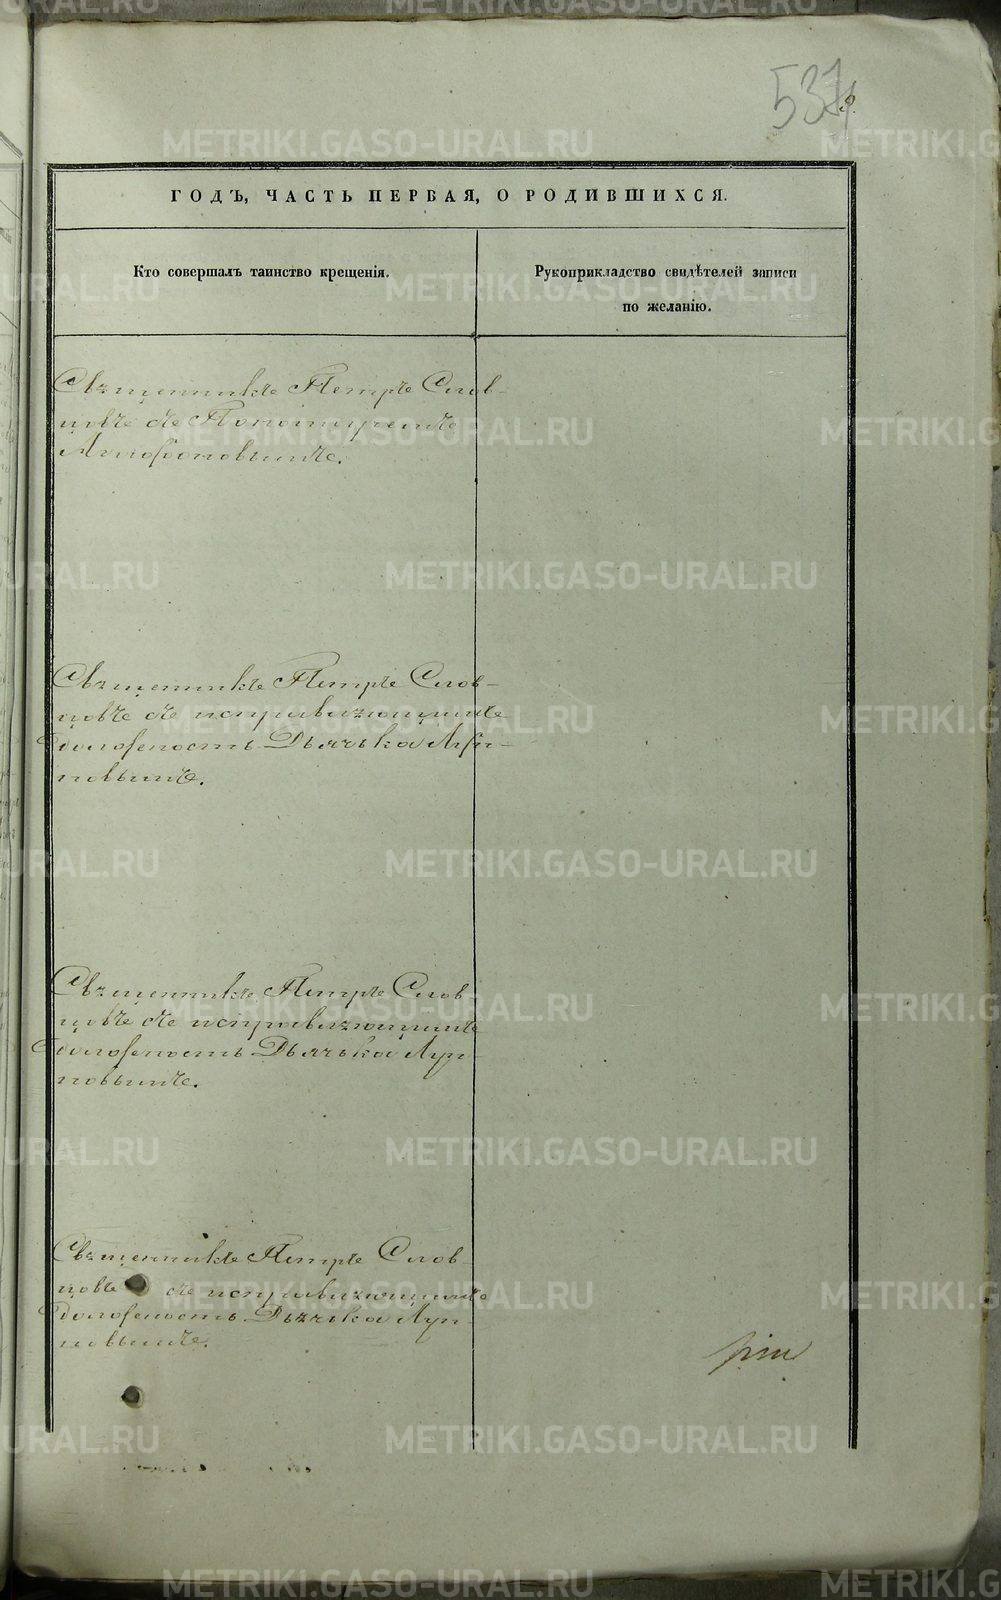 537
9.
ГОДЪ, ЧАСТЬ ПЕРВАЯ, О РОДИВШИХСЯ.
Кто совершалъ таинство крещенія.
Рукоприкладство свидѣтелей записи
по желанію.
Священникъ Петръ Слов-
цовъ съ Пономаремъ
Священникъ Петръ Слов-
цовъ съ исправляющимъ
должность Дьячка Луп-
повымъ.
Священникъ Петръ Слов
цовъ съ исправляющимъ
должность Дьячка Луп
повымъ.
Священникъ Петръ Слов
цовъ съ исправляющимъ
должность Дьячка Луп
повымъ.
METRIKI.GASO-URAL.RU